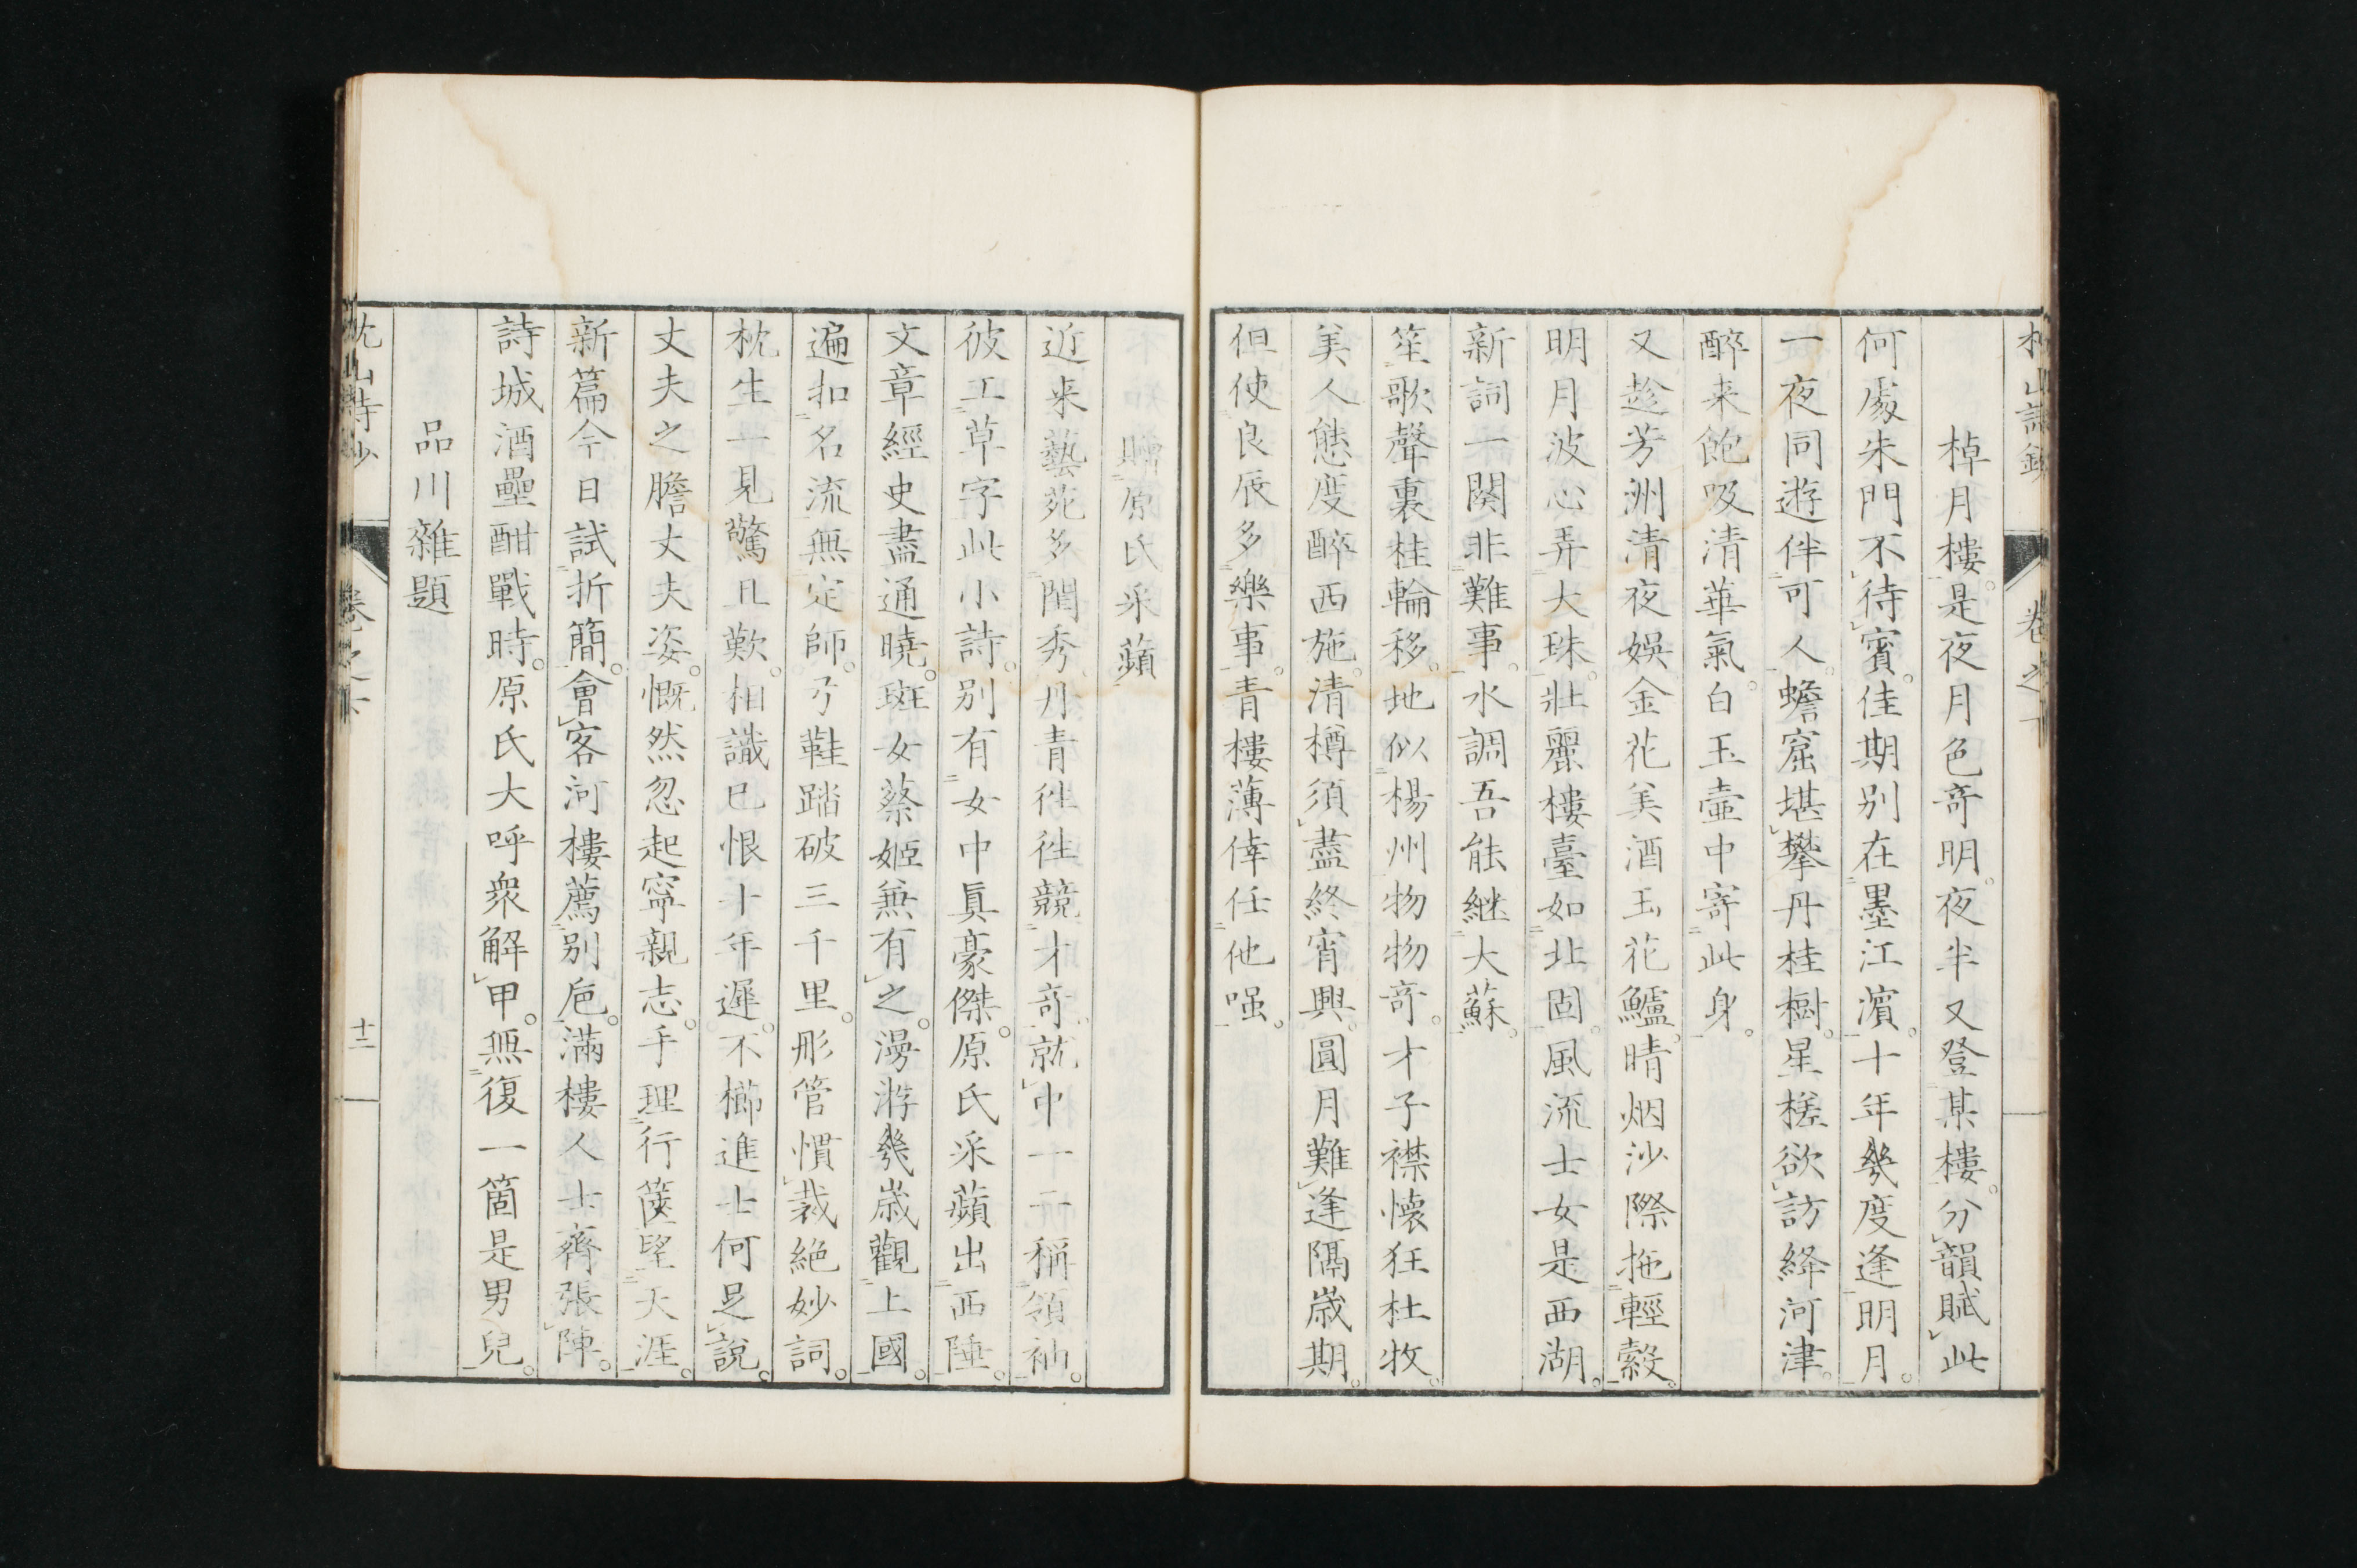 棹月樓。是夜月色奇明。夜半又登某樓。分韻賦此
何處朱門不待賓。佳期別在墨江濱。十年幾度逢明月。
一夜同遊伴可人。蟾窟堪攀丹桂樹。星槎欲訪絳河津。
醉来飽吸清華氣。白玉壺中寄此身。
又趁芳洲清夜娛金花美酒玉花鱸晴烟沙際拖輕縠。
明月波心弄大珠。壯麗樓臺如北固。風流士女是西湖。
新詞一闋非難事。水調吾能継大蘇。
笙歌聲裏桂輪移。地似楊州物物奇。才子襟懷狂杜牧。
美人態度醉西施。清樽須盡終宵興。圓月難逢隔歲期。
但使良辰多樂事。青樓薄倖任他嗤。
贈原氏采蘋
近来藝苑多閨秀。丹青徃徃競才奇。就中一二稱領袖。
彼工草字此小詩。別有女中真豪傑。原氏采蘋出西陲。
文章經史盡通曉。班女蔡姬兼有之。漫游幾歳觀上國。
遍扣名流無定師。弓鞋踏破三千里。彤管慣裁絕妙詞。
枕生一見驚且歎。相識已恨十年遲。不櫛進士何足說。
丈夫之膽丈夫姿。慨然忽起寧親志。手理行篋望天涯。
新篇今日試折簡。會客河樓薦別巵。滿樓人士齊張陣。
詩城酒壘酣戰時。原氏大呼衆解甲。無復一箇是男兒。
品川雜題
枕山詩鈔
卷之下
十二